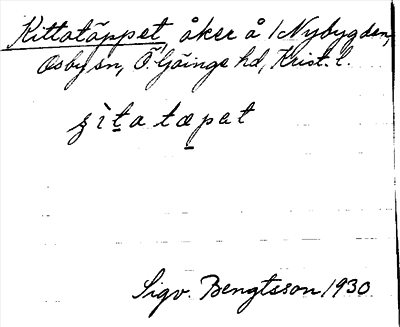 Kittatäppet, åker å 1 Nybygden,
Osby sn, Ö. Göinge hd, Krist. l.
ʂìta tæpet
Sigv. Bengtsson 1930